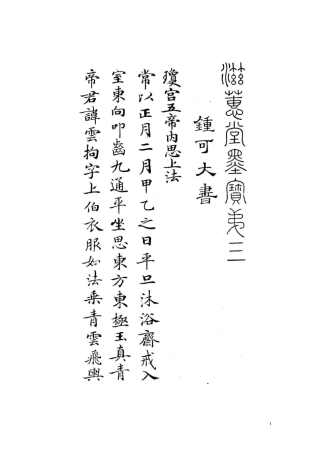 滋蕙堂墨寶弟三
鍾可大書
瓊宮五帝內思上法
常以正月二月甲乙之日平旦沐浴齋戒入
室東向叩齒九通平坐思東方東極玉真青
帝君諱雲拘字上伯衣服如法乘青雲飛輿
1